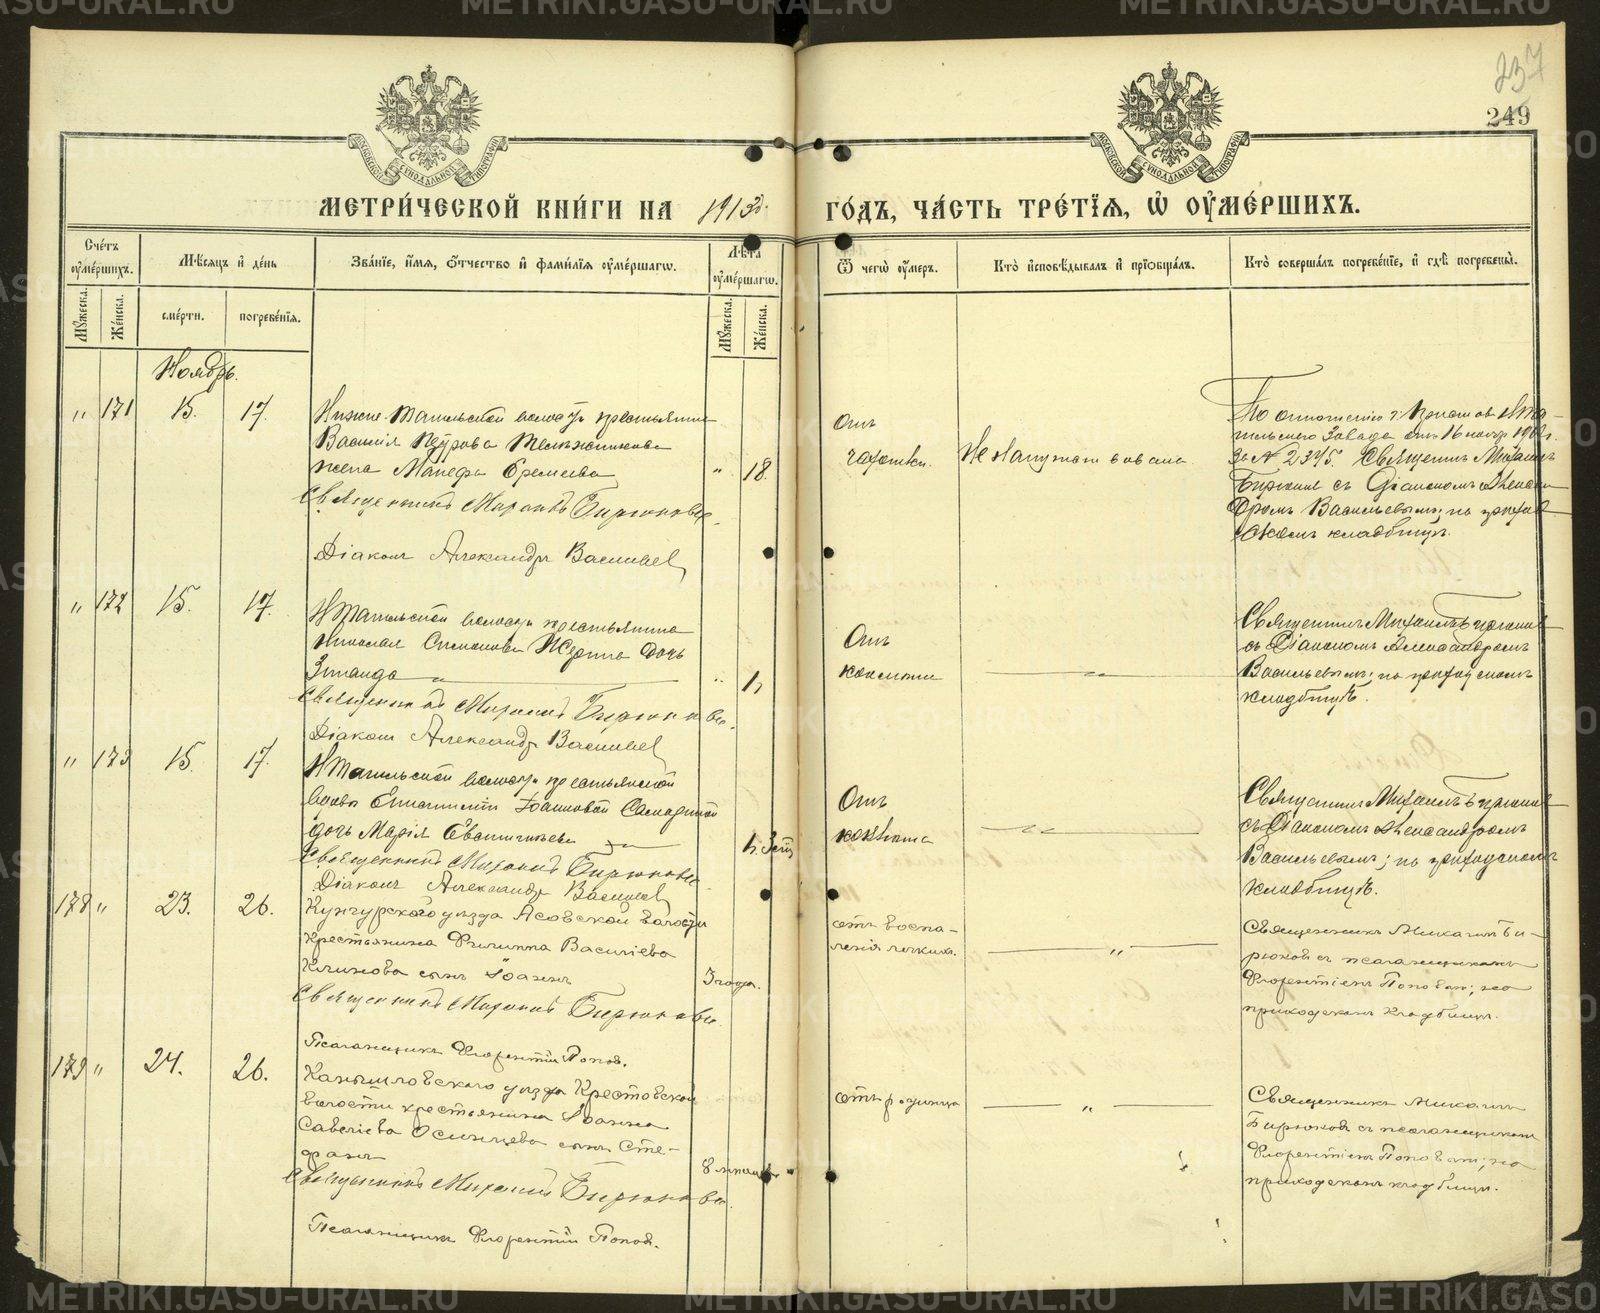 237
249
МОСКОВСКОЙ СѴНОДАЛЬНОЙ ТИПОГРАФІИ
МОСКОВСКОЙ СѴНОДАЛЬНОЙ ТИПОГРАФІИ
МЕТРИ́ЧЕСКОЙ КНИ́ГИ НА 1913 ГО́ДЪ, ЧА́СТЬ ТРЕ́ТІѦ, Ѡ ОУ҆МЕ́РШИХЪ.
Сче́тъ оу҆ме́ршихъ.
Мꙋ́жеска.
Же́нска.
Мѣ́сѧцъ и҆ де́нь
сме́рти.
погребе́нїѧ.
Зва́нїе, и҆́мѧ, ѻ҆́тчество и҆ фами́лїѧ оу҆ме́ршагѡ.
Лѣ́та оу҆ме́ршагѡ.
Мꙋ́жеска.
Же́нска.
Ѿ чегѡ̀ оу҆́меръ.
Кто̀ и҆сповѣ́дывалъ и҆ прїѡбща́лъ.
Кто̀ соверша́лъ погребе́нїе, и҆ гдѣ̀ погребены̀.
Ноябрь.
" 171 15. 17.
Нижне-Тагильской волости крестьянина
Василія Петрова
жена Манефа Еремеева " 18.
Священникъ Михаилъ Бирюковъ.
Діаконъ Александръ Васильев
Отъ
чахотки.
Не напутствована
По отношенію г. Пристава Н Та-
гильскаго Завода отъ 16 нояб.
за № 2375. Священникъ Михаилъ
Бирюков съ Діакономъ Алексан-
дромъ Васильевымъ; на приход-
скомъ кладбищѣ.
" 172 15. 17.
Н Тагильской волости крестьянина
Николая Симонова дочь
Зинаида " 1,
Священникъ Михаилъ Бирюковъ.
Діаконъ Александръ Васильев
Отъ
коклюша
Священникъ Михаилъ Бирюков
съ Діакономъ Александромъ
Васильевымъ; на приходскомъ
кладбищѣ.
" 173 15. 17.
Н Тагильской волости крестьянской
вдовы Іоанновой
дочь Марія
Священникъ Михаилъ Бирюковъ
Діаконъ Александръ Васильев
Отъ
коклюша
Священникъ Михаилъ Бирюков
съ Діакономъ Александромъ
Васильевымъ; на приходскомъ
кладбищѣ.
178 " 23. 26.
Кунгурского уезда Асовской волости
Крестьянина Филиппа Василіева
Климова сынъ Іоаннъ 3 года.
Священникъ Михаилъ Бирюковъ.
Псаломщикъ Флорентій Попов.
отъ воспа-
ленія легкихъ.
Священникъ Михаилъ Би-
рюков съ псаломщикомъ
Флорентіемъ Поповым; на
приходскомъ кладбищѣ.
179 " 24. 26.
Камышловского уезда Крестовской
волости крестьянина Іоанна
Савеліева Осинцева сынъ Сте-
фанъ 8 месяцев
Священникъ Михаилъ Бирюковъ.
Псаломщикъ Флорентій Попов.
отъ родимца
Священникъ Михаилъ
Бирюков съ псаломщикомъ
Флорентіемъ Поповым; на
приходскомъ кладбищѣ.
METRIKI.GASO-URAL.RU